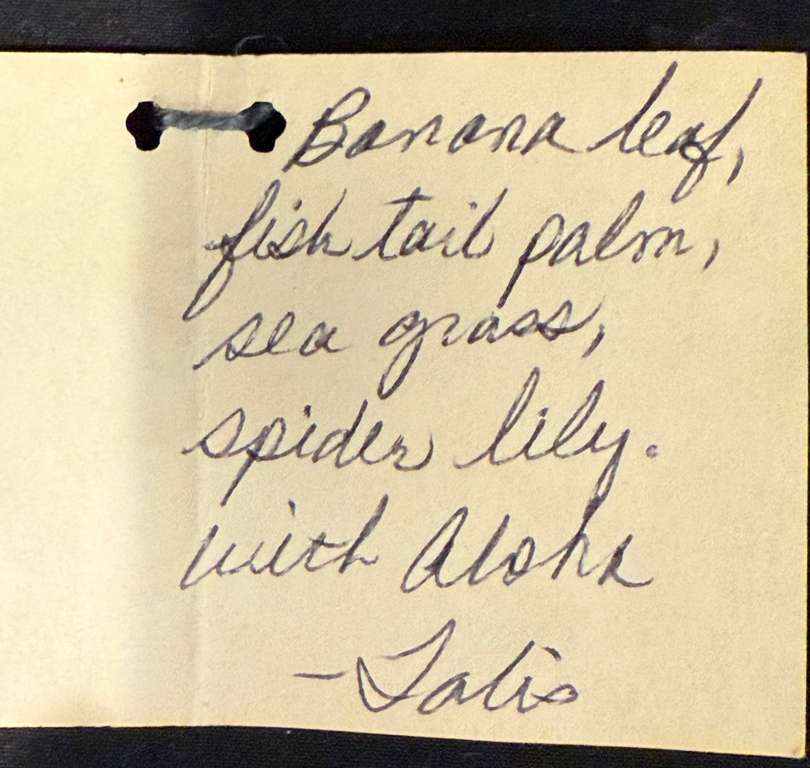 Banana leaf,
fish tail palm,
sea grass,
spider lily.
with Aloha